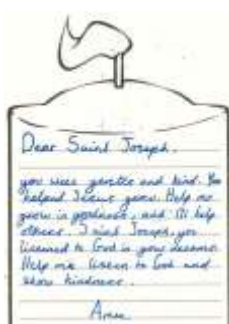 Dear Saint Joseph.
you were gentle and kind. You
helped Jesus grow. Help me
grow in goodness, and I'll help
others. Saint Joseph, you
listened to God in your dreams.
Help me listen to God and
show kindness.
Amen